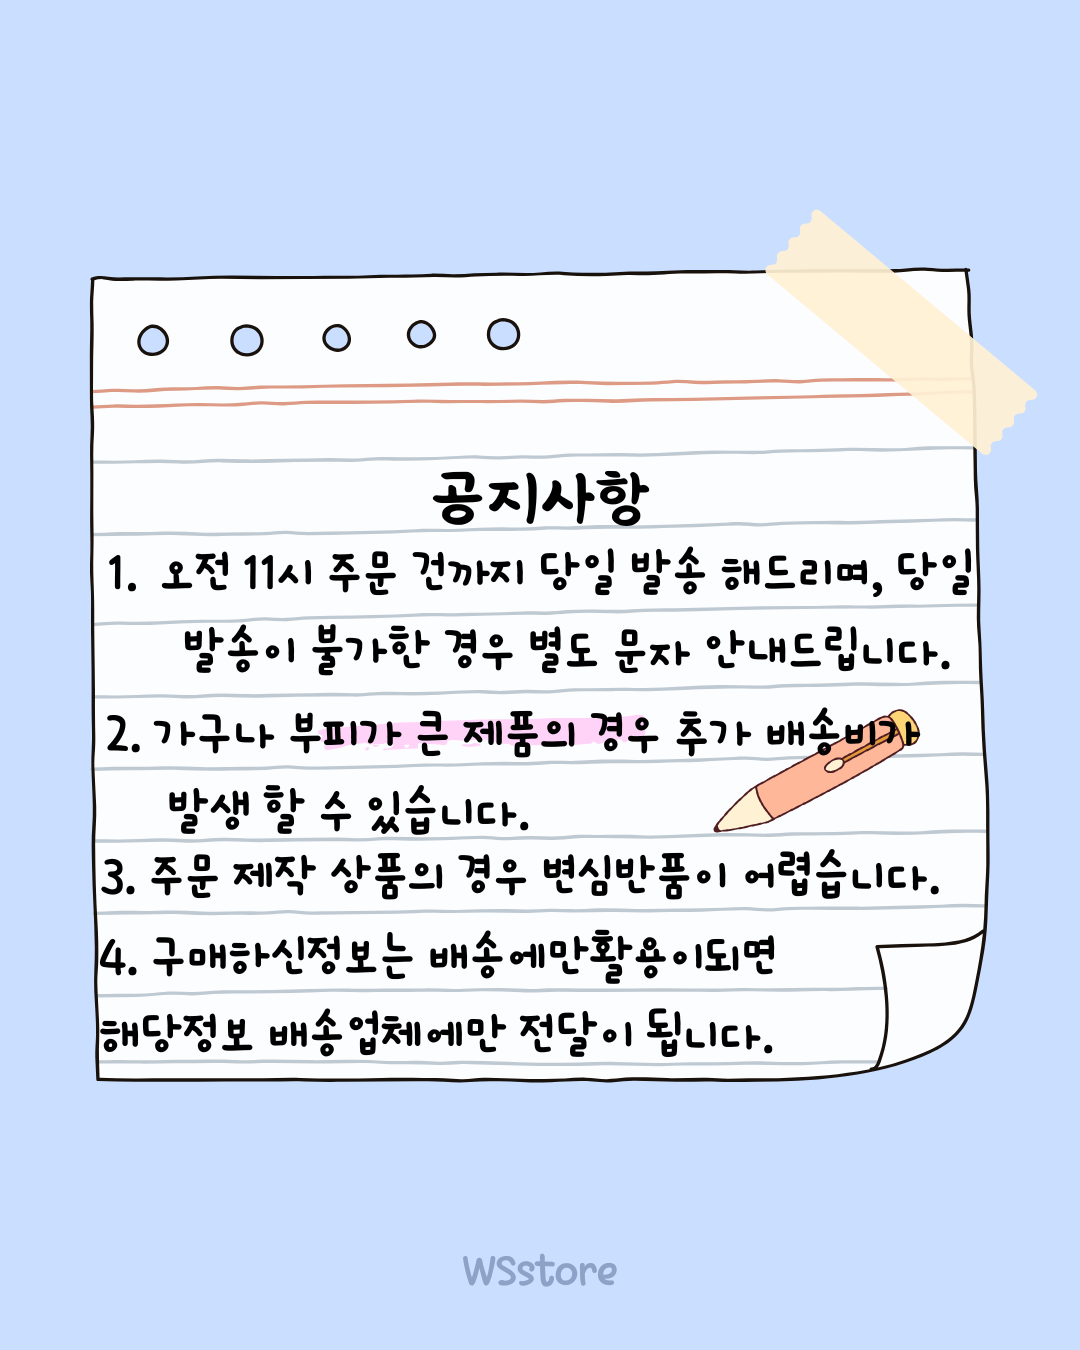 공지사항
1. 오전 11시 주문 건까지 당일 발송 해드리며, 당일
발송이 불가한 경우 별도 문자 안내드립니다.
2. 가구나 부피가 큰 제품의 경우 추가 배송비가
발생 할 수 있습니다.
3. 주문 제작 상품의 경우 변심반품이 어렵습니다.
4. 구매하신정보는 배송에만활용이되면
해당정보 배송업체에만 전달이 됩니다.
WSstore